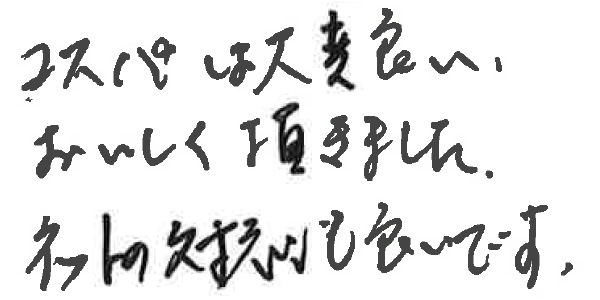 コスパは大変良い、
おいしく頂きました。
ネットの対応も良いです。